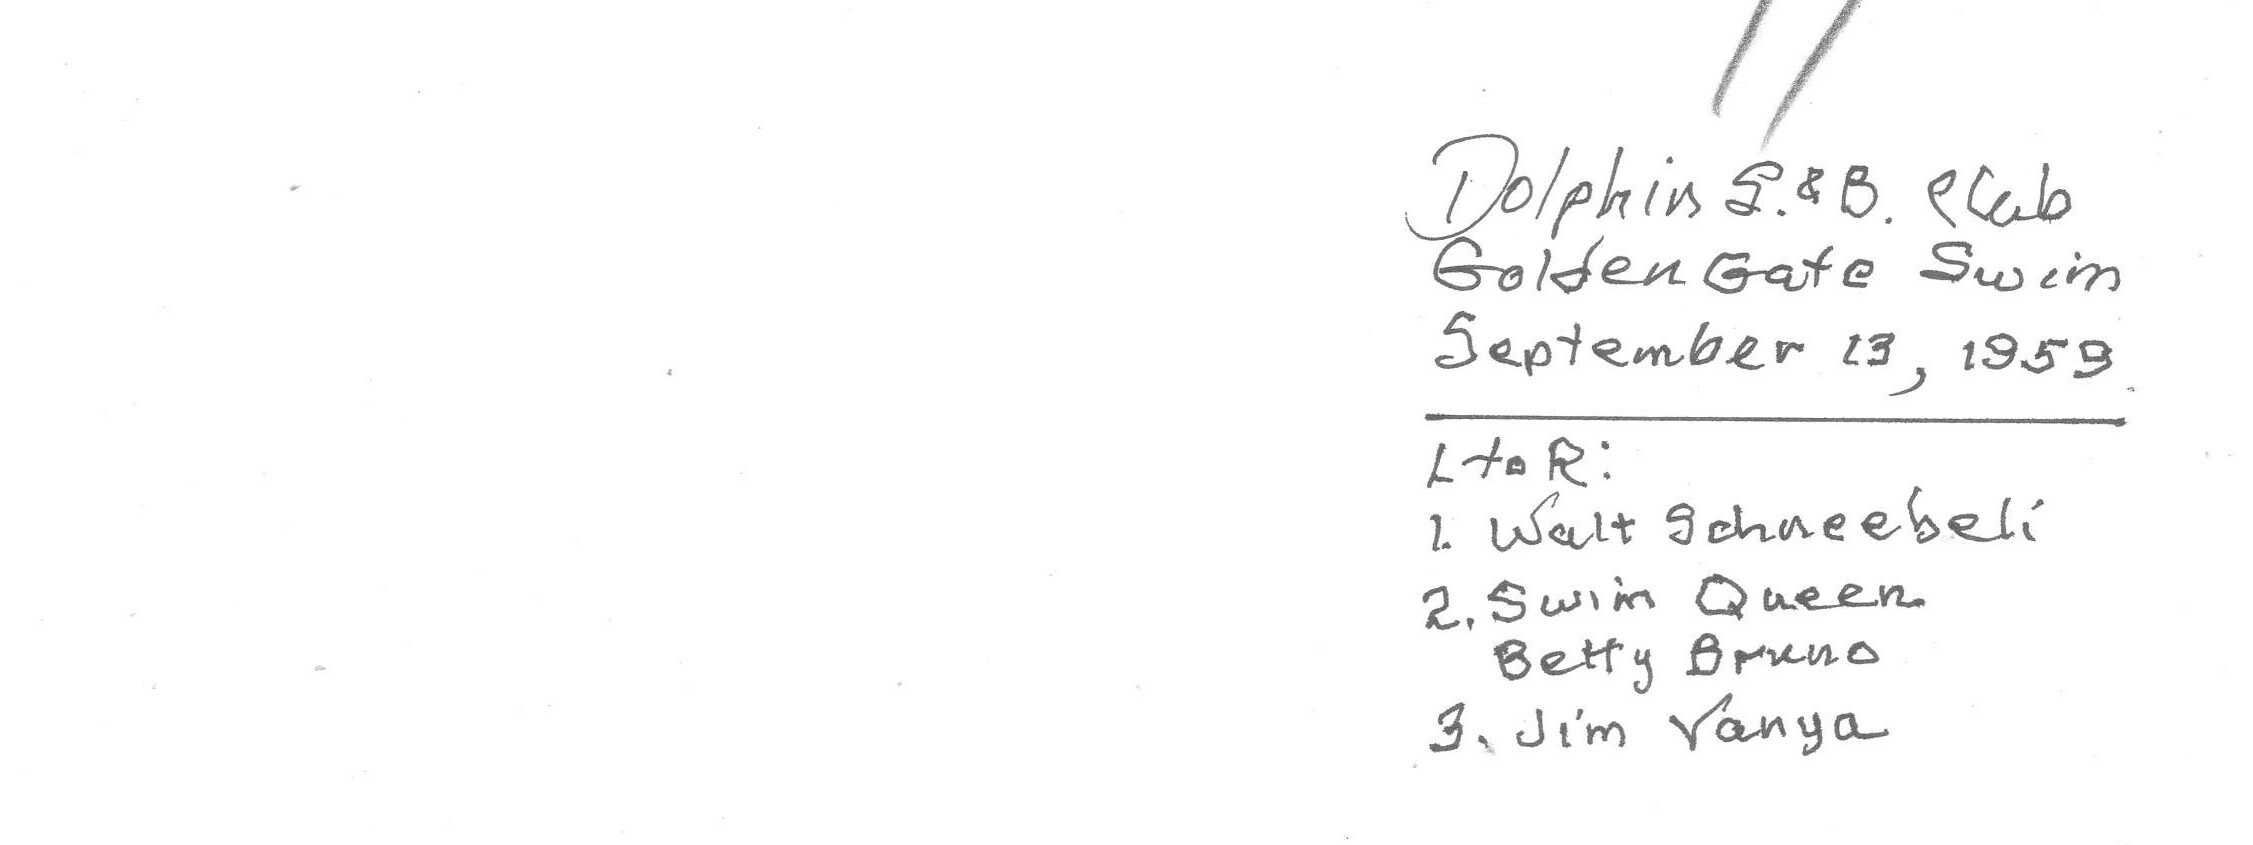 Dolphin S. & B. Club
Golden Gate Swim
September 13, 1959
L to R:
1. Walt Schneebeli
2. Swim Queen
Betty Bruno
3. Jim Vanya